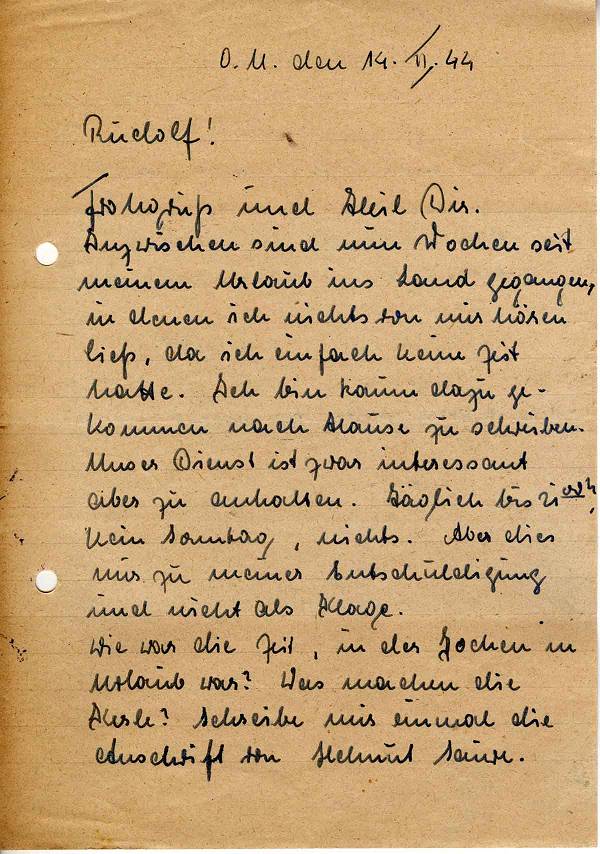 O.U. den 14. II. 44
Rudolf!
Frohgruß und Heil Dir.
Inzwischen sind nun Wochen seit
meinem Urlaub ins Land gegangen,
in denen ich nichts von mir hören
ließ, da ich einfach keine Zeit
hatte. Ich bin kaum dazu ge-
kommen nach Hause zu schreiben.
Unser Dienst ist zwar interessant
aber zu anhalten. Täglich bis 21 00 h,
kein Sonntag, nichts. Aber dies
nur zu meiner Entschuldigung
und nicht als Klage.
Wie war die Zeit, in der Jochen in
Urlaub war? Was machen die
Kerle? Schreibe mir einmal die
Anschrift von Helmut